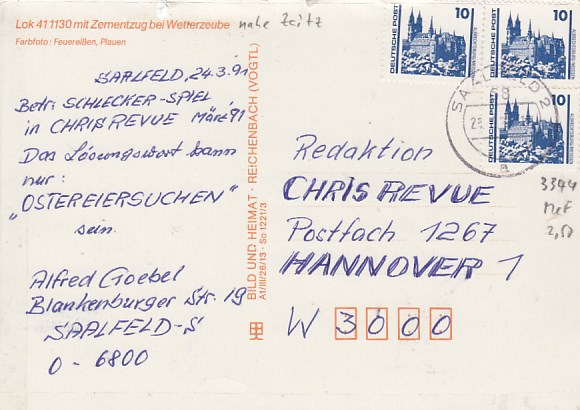 Lok 41 1130 mit Zementzug bei Wetterzeube nahe Zeitz
Farbfoto: Feuereißen, Plauen
SAALFELD, 24.3.91
Betr: SCHLECKER-SPIEL
in CHRIS REVUE März 91
Das Lösungswort kann
nur:
"OSTEREIERSUCHEN"
sein.
Alfred Goebel
Blankenburger Str. 19
SAALFELD-S
O-6800
BILD UND HEIMAT · REICHENBACH (VOGTL)
A1/III/26/13 · So 1221/3
DEUTSCHE POST 10
DEUTSCHE POST 10
DEUTSCHE POST 10
SAALFELD 2
68
a
Redaktion
CHRIS REVUE
Postfach 1267
HANNOVER 1
W 3000
3344
MeF
2,50